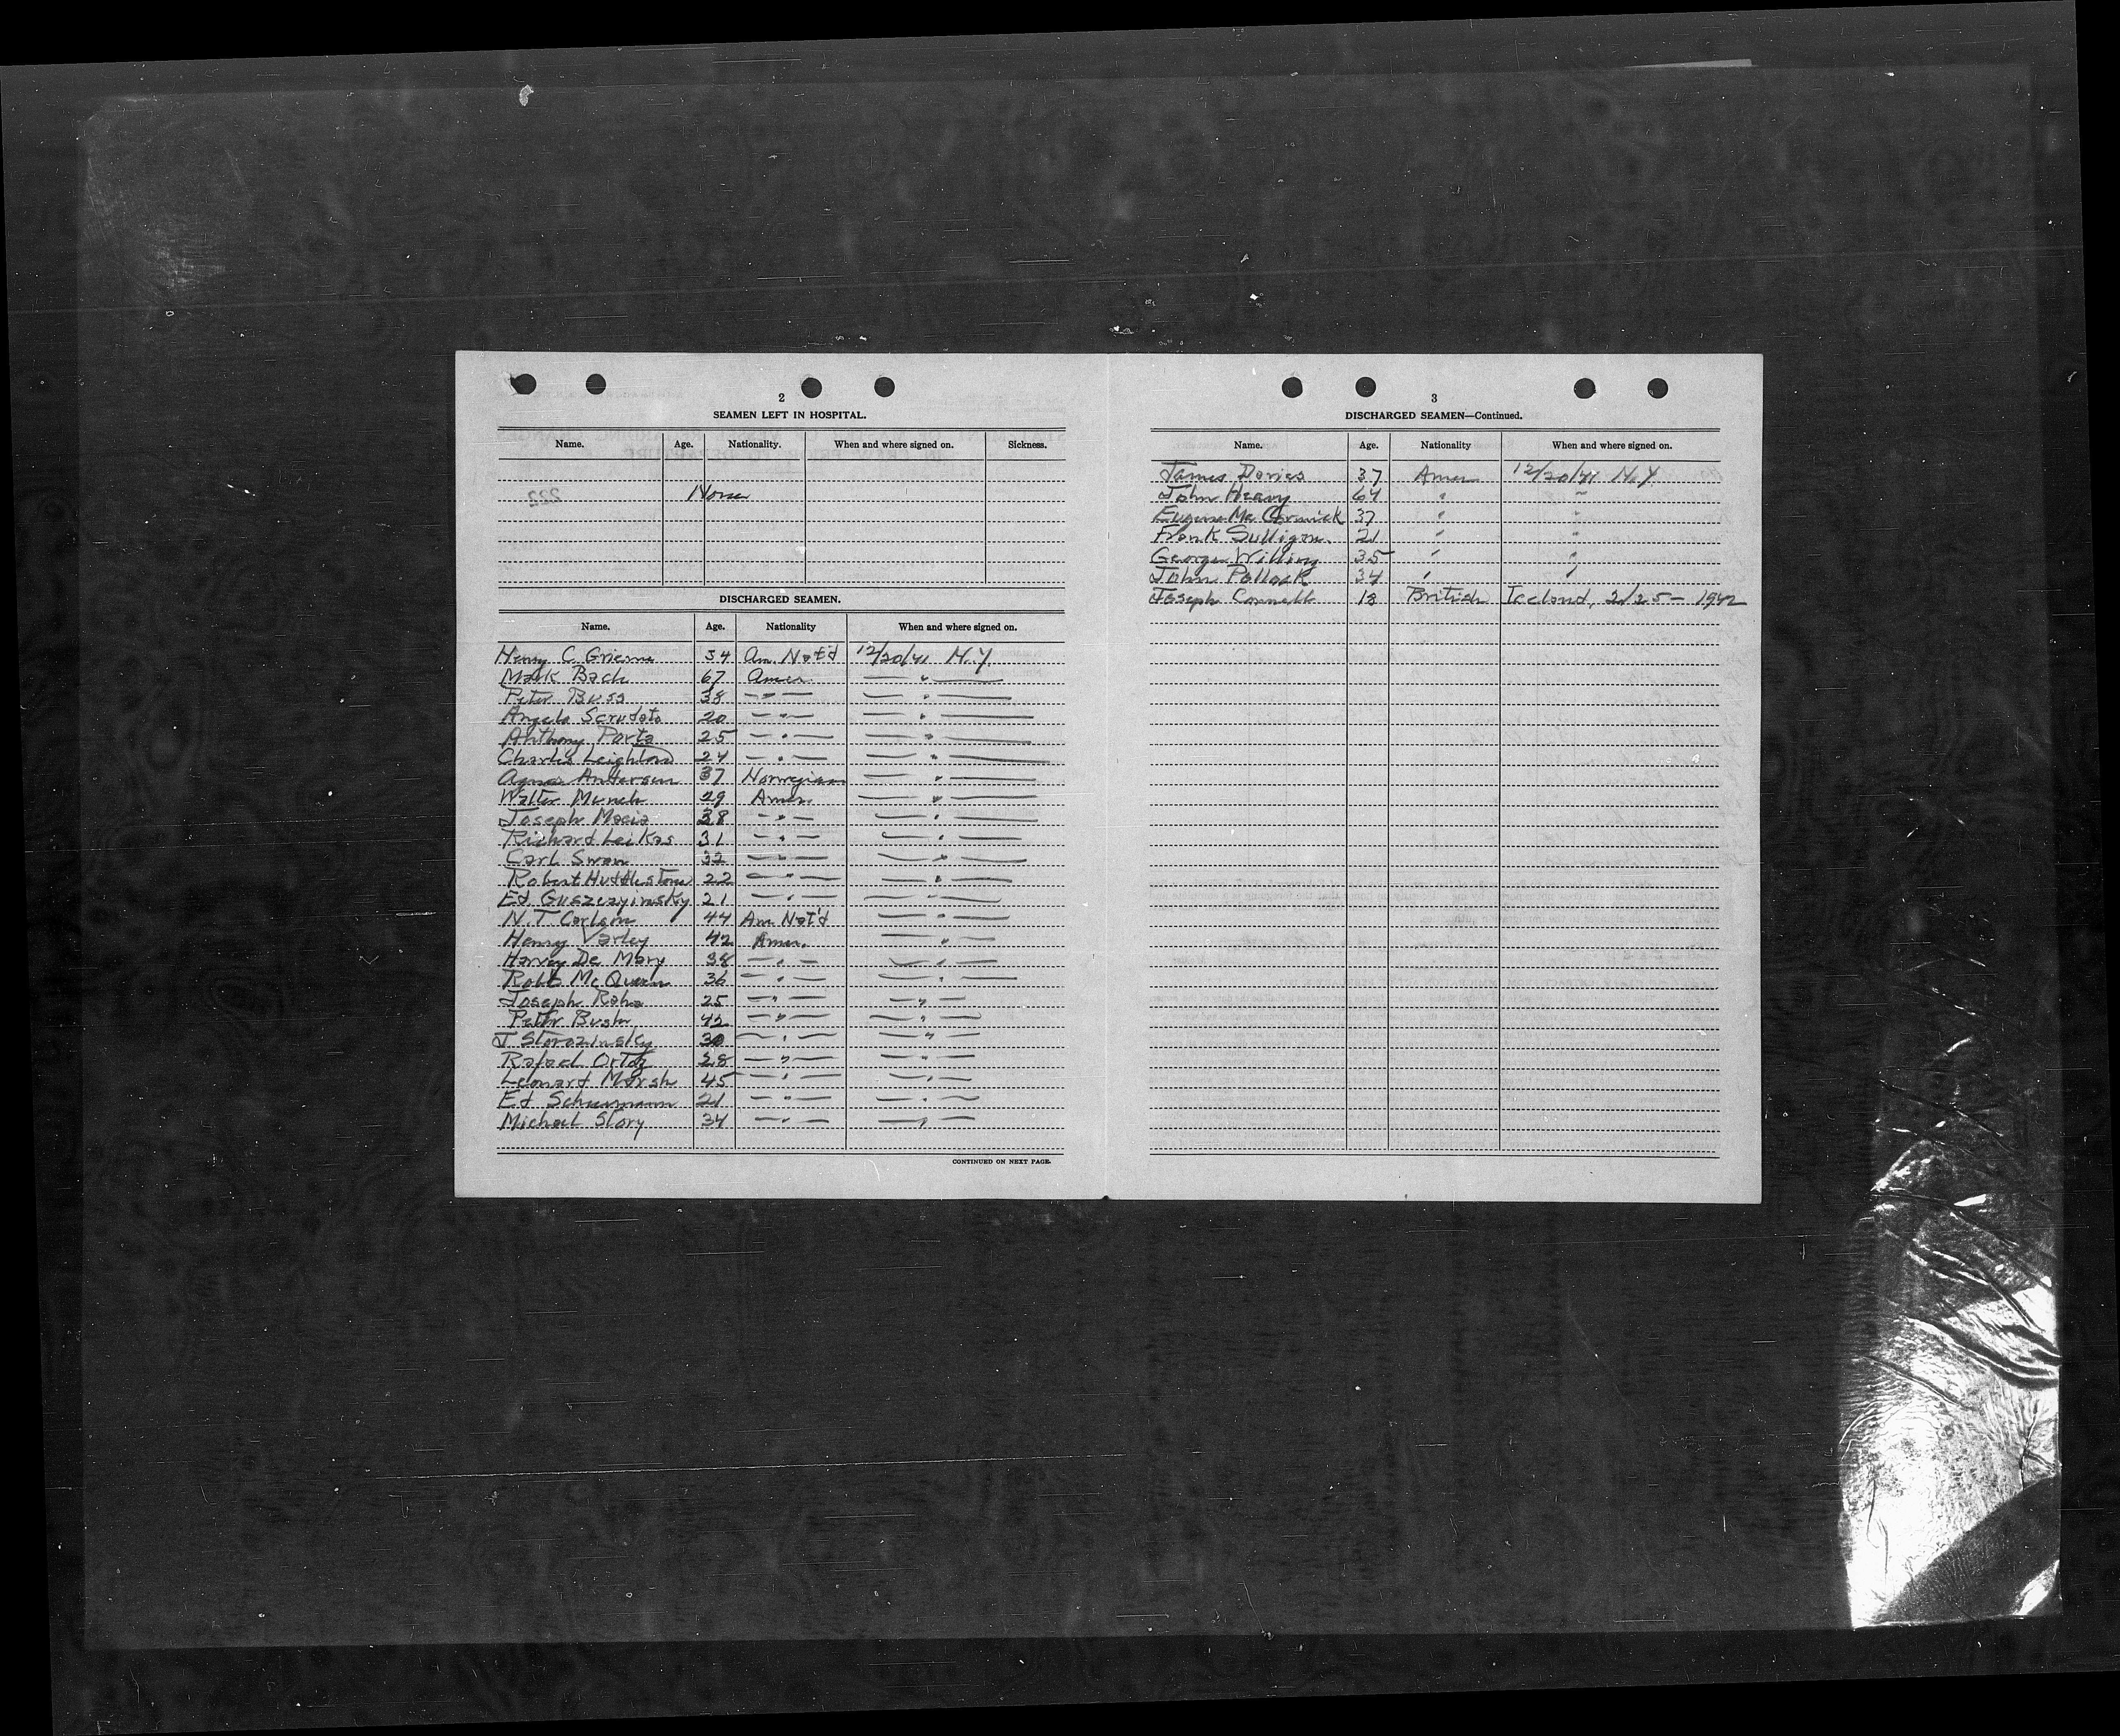 2
SEAMEN LEFT IN HOSPITAL.
Name. Age. Nationality. When and where signed on. Sickness.
None
DISCHARGED SEAMEN.
Name. Age. Nationality When and where signed on.
Henry C. 34 Am. Nat'd 12/20/41 N.Y.
Mark Bach 67 Amer. — " —
Peter Buss 38 — " — — " —
Angelo Scrudato 20 — " — — " —
Anthony Porta 25 — " — — " —
Charles Leighton 24 — " — — " —
Andersen 37 Norwegian — " —
Walter Munch 29 Amer. — " —
Joseph 38 — " — — " —
Richard Leikas 31 — " — — " —
Carl Swan 32 — " — — " —
Robert Huddlestone 22 — " — — " —
Ed. 21 — " — — " —
N.T. Carlson 44 Am. Nat'd — " —
Henry Varley 42 Amer. — " —
Harvey De Mary 38 — " — — " —
Robt McQueen 36 — " — — " —
Joseph 25 — " — — " —
Peter Bush 42 — " — — " —
J Storozinsky 30 — " — — " —
Rafael Ortiz 28 — " — — " —
Leonard Marsh 45 — " — — " —
Ed Schuermann 21 — " — — " —
Michael Story 34 — " — — " —
CONTINUED ON NEXT PAGE.
3
DISCHARGED SEAMEN—Continued.
Name. Age. Nationality When and where signed on.
James Davies 37 Amer 12/20/41 N.Y.
John Heavy 64 " "
Eugene McCormick 37 " "
Frank 21 " "
George Willing 35 " "
John Pollack 34 " "
Joseph Connell 18 British Iceland, 2/25 – 1942